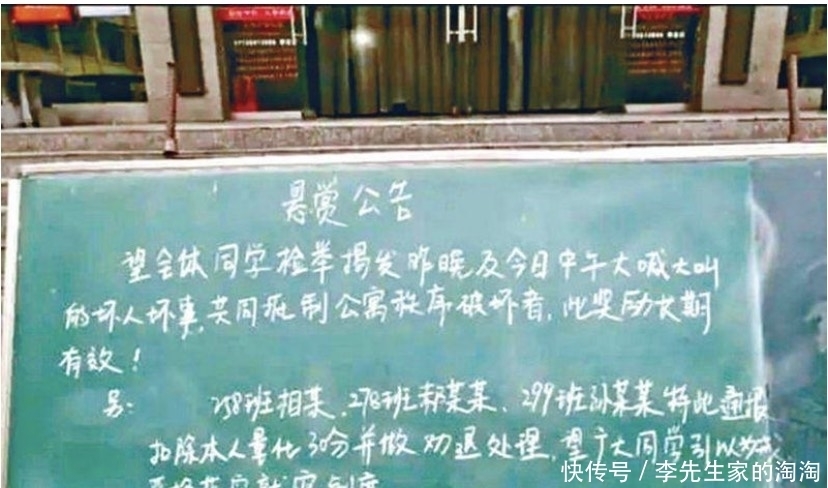 悬赏公告
望全体同学检举揭发昨晚及今日中午大喊大叫
的坏人坏事，共同抵制公寓秩序破坏者，此奖励长期
有效！
另： 258班相某、278班郝某某、299班孙某某特此通报
扣除本人量化30分并做劝退处理，望广大同学引以为戒
快传号/李先生家的淘淘